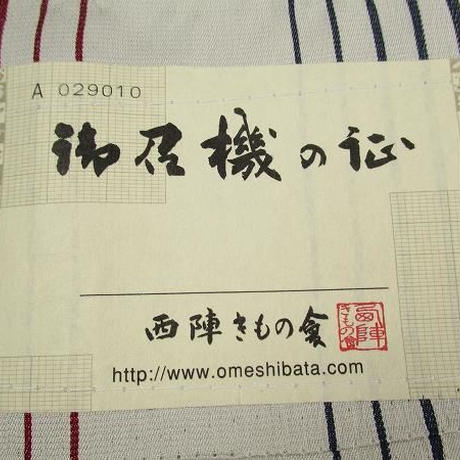 A 029010
御召機の証
西陣きもの會
西陣
きもの會
http://www.omeshibata.com